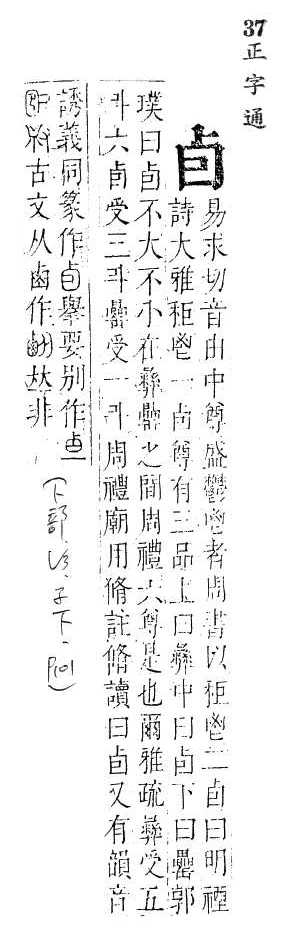 37
正字通
卣
易求切音由中尊盛鬱鬯者周書以秬鬯二卣曰明禋
詩大雅秬鬯一卣尊有三品上曰彝中曰卣下曰罍郭
璞曰卣不大不小在彝罍之間周禮六尊是也爾雅疏彝受五
斗六卣受三斗罍受一斗周禮廟用脩註脩讀曰卣又有韻音
誘義同篆作卣舉要別作
古文从鹵作𠀤非
卜部 子下、P101)